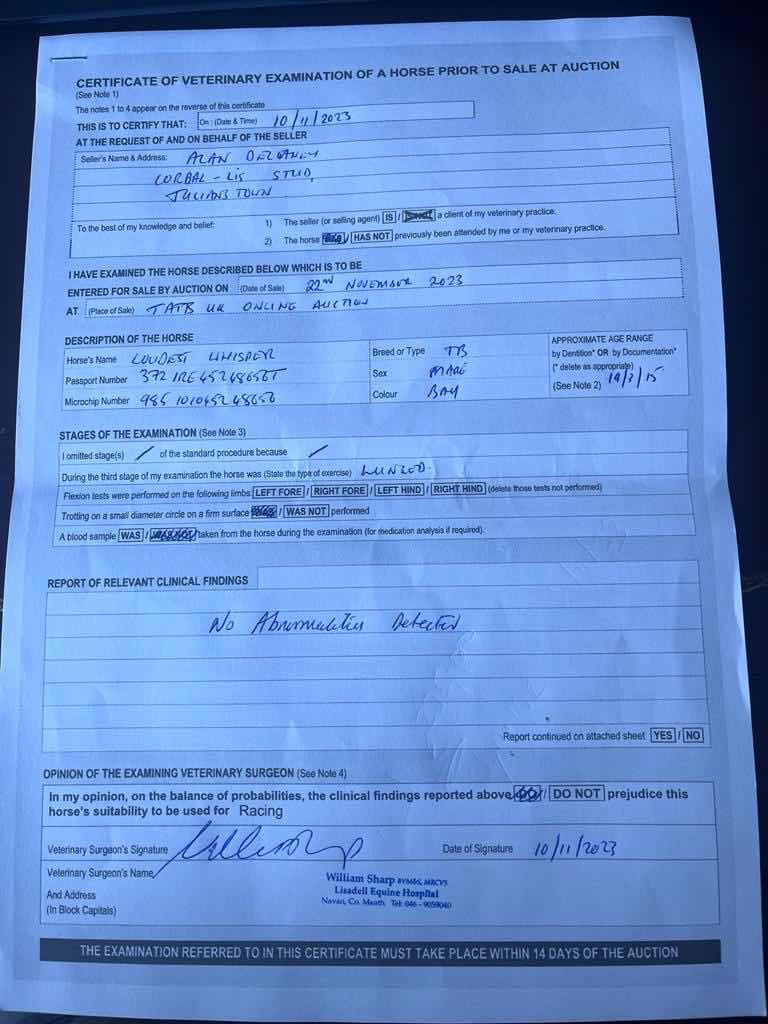 CERTIFICATE OF VETERINARY EXAMINATION OF A HORSE PRIOR TO SALE AT AUCTION
(See Note 1)
The notes 1 to 4 appear on the reverse of this certificate
THIS IS TO CERTIFY THAT: On : (Date & Time) 10/11/2023
AT THE REQUEST OF AND ON BEHALF OF THE SELLER
Seller's Name & Address: ALAN DELANEY
CORBAL-LIS STUD,
JULIANSTOWN
To the best of my knowledge and belief: 1) The seller (or selling agent) IS / a client of my veterinary practice.
2) The horse / HAS NOT previously been attended by me or my veterinary practice.
I HAVE EXAMINED THE HORSE DESCRIBED BELOW WHICH IS TO BE
ENTERED FOR SALE BY AUCTION ON (Date of Sale) 22ND NOVEMBER 2023
AT (Place of Sale) ONLINE AUCTION
DESCRIPTION OF THE HORSE
Horse's Name LOUDEST WHISPER
Passport Number
Microchip Number
Breed or Type TB
Sex MARE
Colour BAY
APPROXIMATE AGE RANGE
by Dentition* OR by Documentation*
(* delete as appropriate)
(See Note 2) 19/3/15
STAGES OF THE EXAMINATION (See Note 3)
I omitted stage(s) / of the standard procedure because /
During the third stage of my examination the horse was (State the type of exercise) LUNGED.
Flexion tests were performed on the following limbs LEFT FORE / RIGHT FORE / LEFT HIND / RIGHT HIND (delete those tests not performed)
Trotting on a small diameter circle on a firm surface / WAS NOT performed
A blood sample WAS / taken from the horse during the examination (for medication analysis if required).
REPORT OF RELEVANT CLINICAL FINDINGS
No Abnormalities Detected
Report continued on attached sheet YES / NO
OPINION OF THE EXAMINING VETERINARY SURGEON (See Note 4)
In my opinion, on the balance of probabilities, the clinical findings reported above / DO NOT prejudice this
horse's suitability to be used for Racing
Veterinary Surgeon's Signature
Date of Signature 10/11/2023
Veterinary Surgeon's Name
And Address
(In Block Capitals)
William Sharp BVM&S, MRCVS
Lisadell Equine Hospital
Navan, Co. Meath. Tel: 046 - 9059040
THE EXAMINATION REFERRED TO IN THIS CERTIFICATE MUST TAKE PLACE WITHIN 14 DAYS OF THE AUCTION